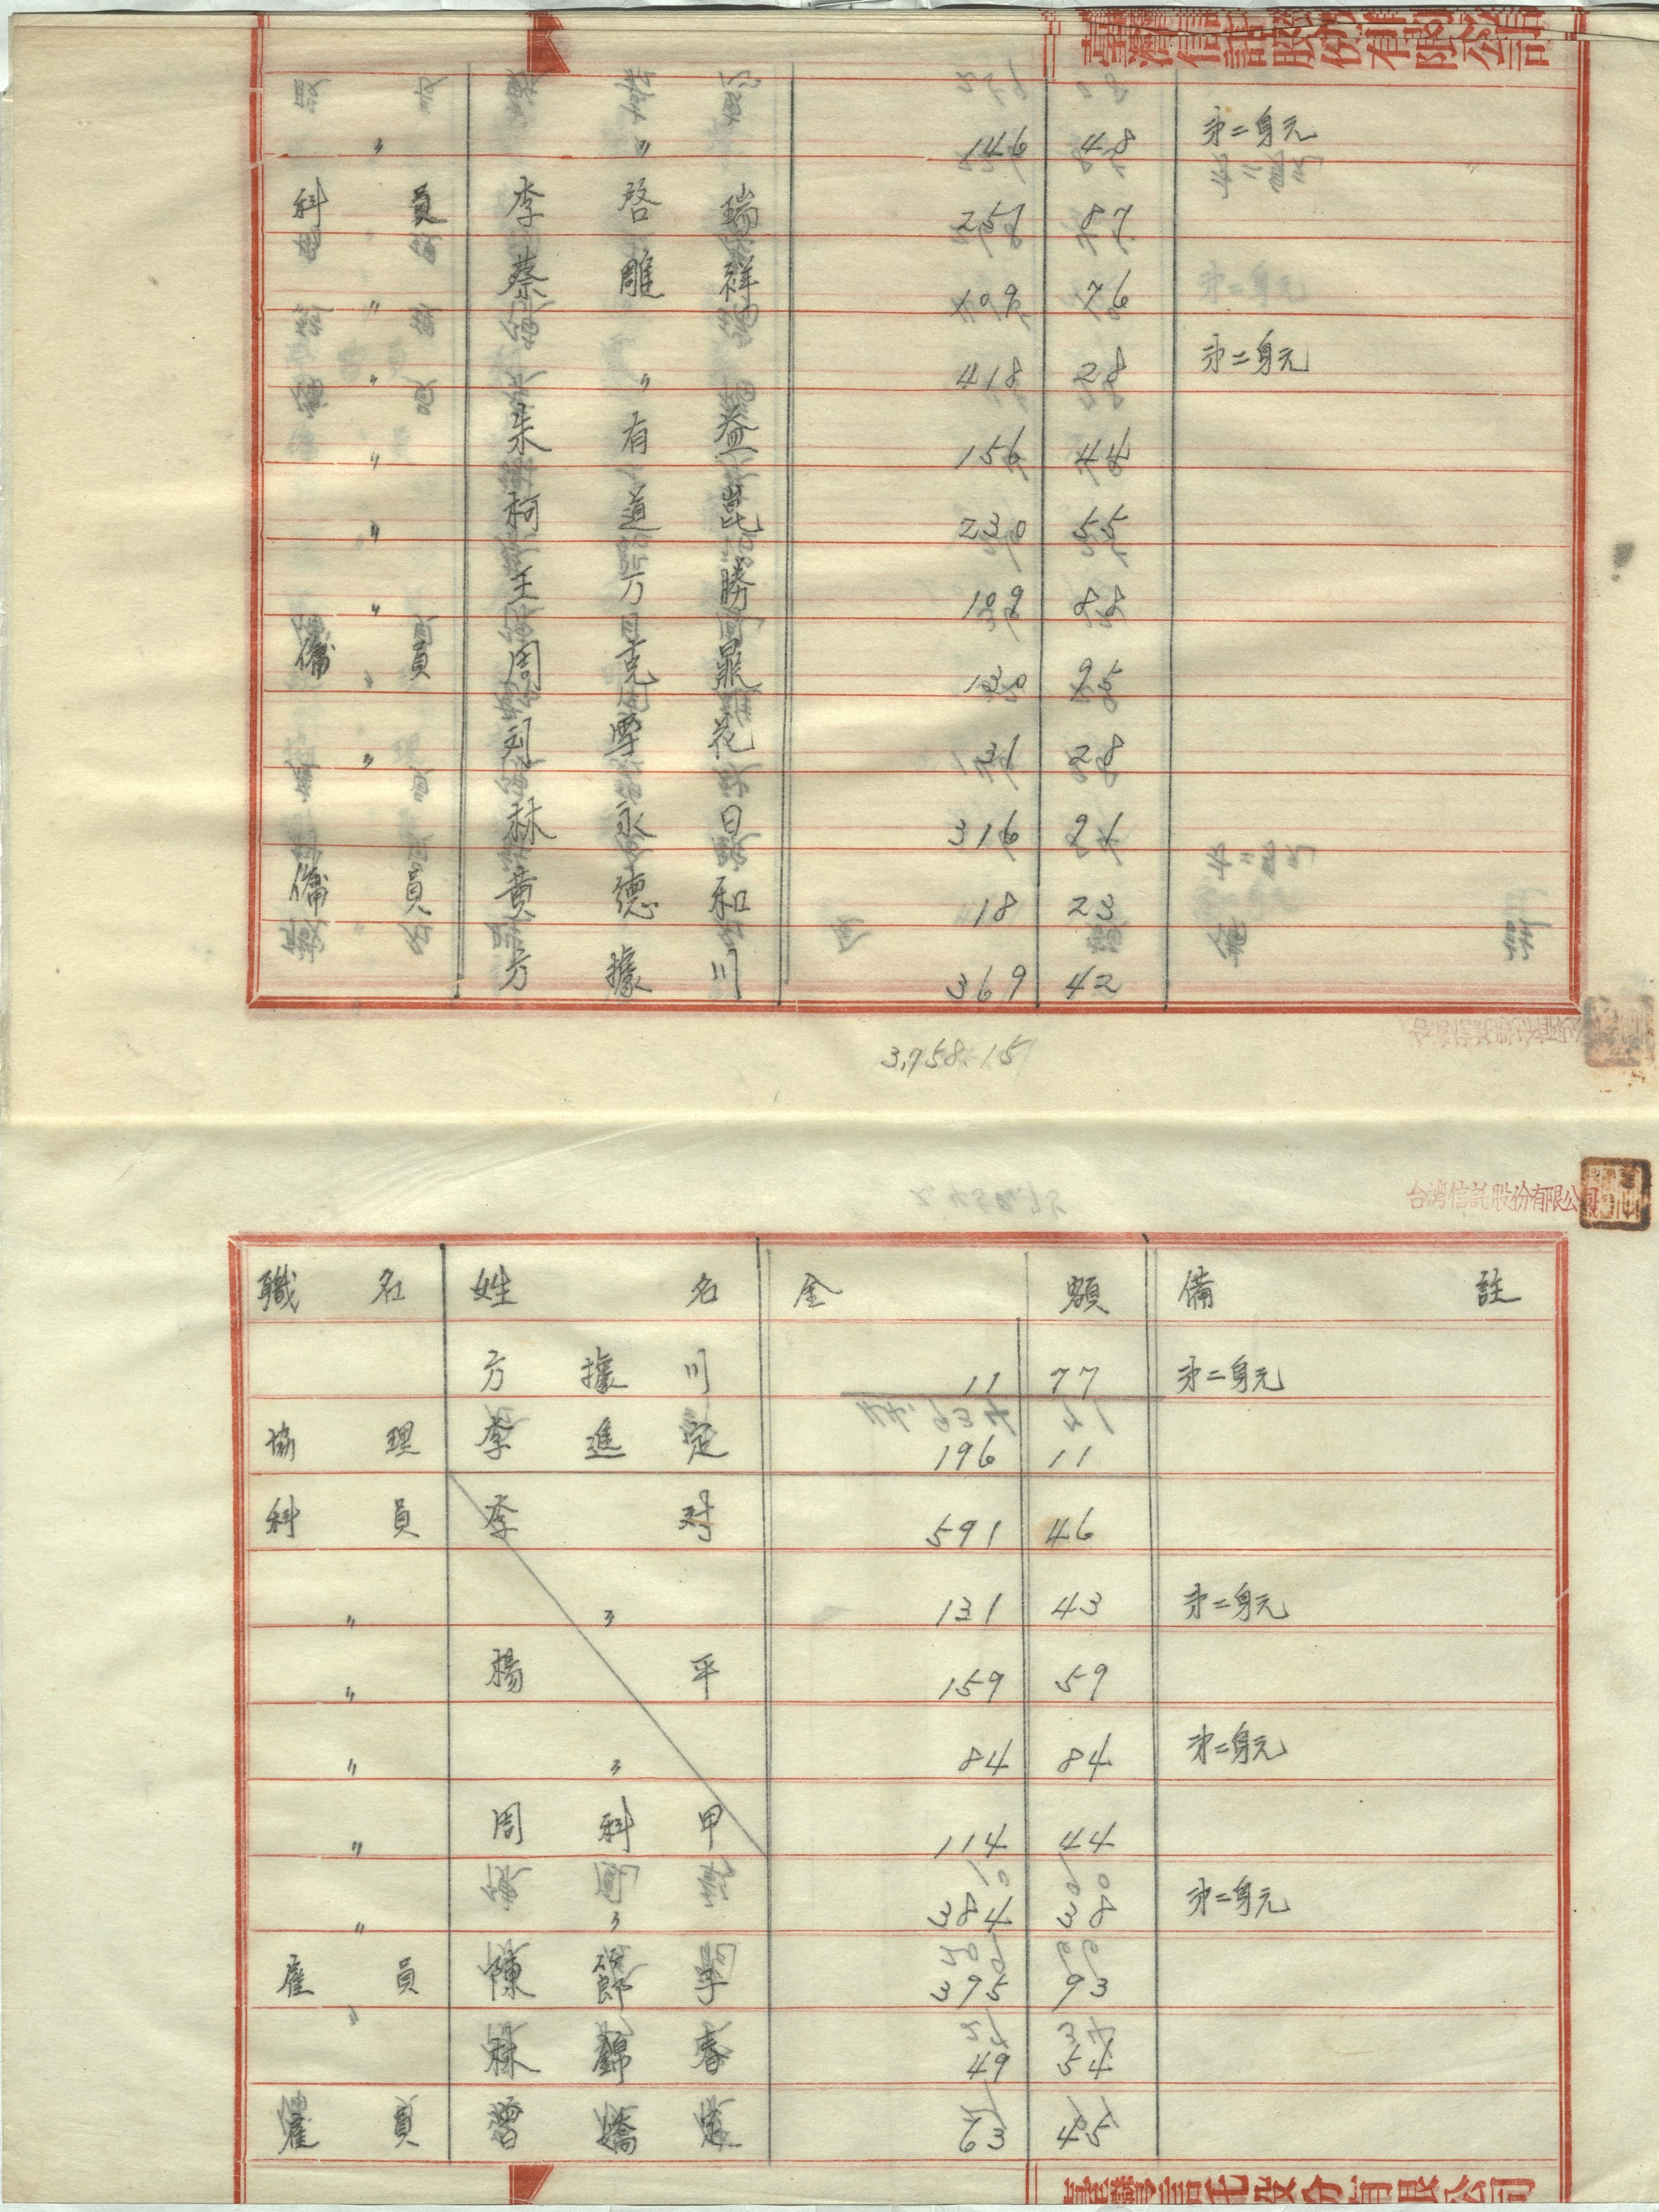 臺灣信託股份有限公司
〃 〃 146 48 㐧二身元
科員 李啓瑞 257 87
〃 蔡雕祥 109 76
〃 〃 418 28 㐧二身元
〃 朱有益 156 44
〃 柯道崑 230 55
〃 王万勝 109 88
傭員 周克鼎 130 95
〃 刘罕花 131 28
〃 林永日 316 21
傭員 黄德和 18 23
方據川 369 42
3,758.15
台湾信託股份有限公司
職名 姓名 金額 備註
方據川 11 77 㐧二身元
協理 李進定 196 11
科員 李对 591 46
〃 〃 131 43 㐧二身元
〃 楊平 159 59
〃 〃 84 84 㐧二身元
〃 周科甲 114 44
〃 〃 384 38 㐧二身元
雇員 陳 395 93
〃 林錦春 49 54
雇員 曾嬌 63 45
臺灣信託股份有限公司